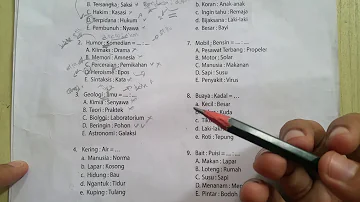 B. Tersangka : Saksi
C. Hakim : Kasasi
D. Terpidana : Hukum
E. Pembunuh : Nyawa
2. Humor : Komedian = ... : ...
A. Klimaks : Drama
B. Memori : Amnesia
C. Perceraian : Pernikahan
D. Heroisme : Epos
E. Sintaksis : Kata
3. Geologi : Ilmu = ... : ...
A. Kimia : Senyawa
B. Teori : Praktek
C. Biologi : Laboratorium
D. Beringin : Pohon
E. Astronomi : Galaksi
4. Kering : Air = ...
a. Manusia : Norma
b. Lapar : Kosong
c. Hidung : Bau
d. Ngantuk : Tidur
e. Kuping : Tulang
b. Kolor : Anak
c. Ingin tahu : Remaja
d. Bijaksana : Laki-laki
e. Besar : Bayi
7. Mobil : Bensin = ... : ...
A. Pesawat Terbang : Propeler
B. Motor : Solar
C. Manusia : Makanan
D. Sapi : Susu
E. Penyakit : Virus
8. Buaya : Kadal = ...
a. Kecil : Besar
Kuda
d. Laki-laki
e. Roti : Tepung
9. Bait : Puisi = ... : ...
A. Makan : Lapar
B. Loteng : Rumah
C. Susu : Sapi
D. Menanam :
E. Pintar : Bodoh